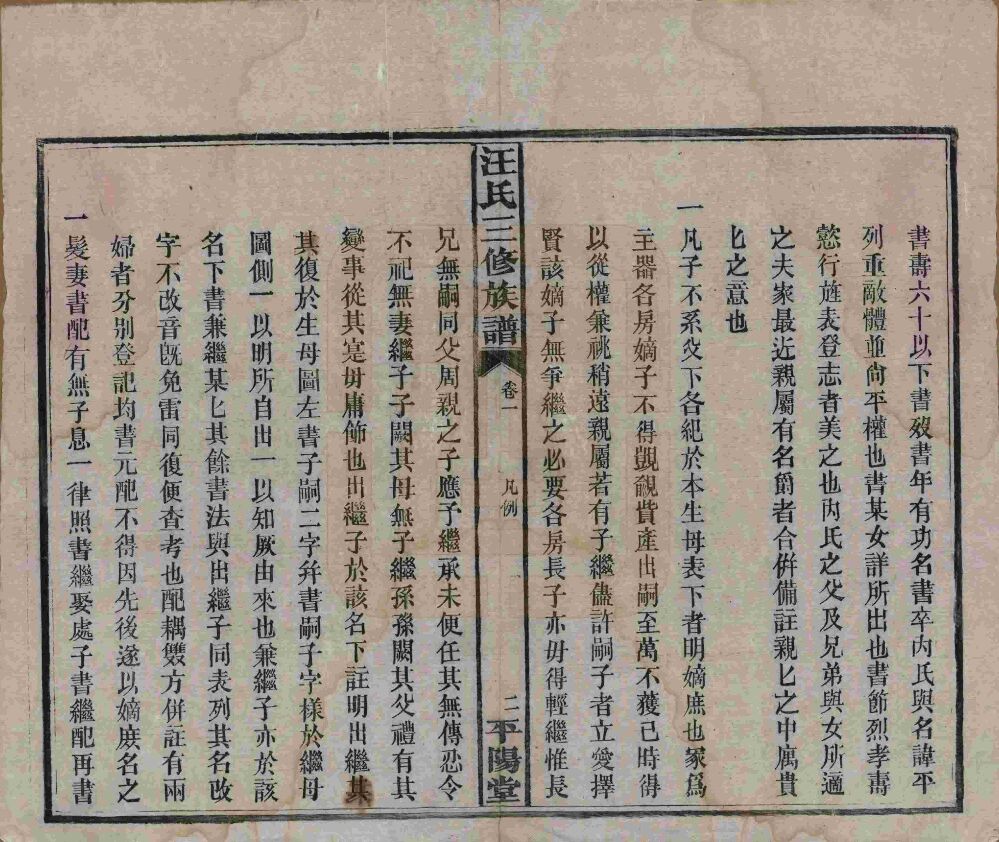 書壽六十以下書歿書年有功名書卒內氏與名諱平
列重敵體並尙平權也書某女詳所出也書節烈孝壽
慗行旌表登志者美之也內氏之父及兄弟與女所適
之夫家最近親屬有名爵者合併備註親匕之中寓貴
匕之意也
一凡子不系父下各紀於本生母表下者明嫡庶也冢爲
主器各房嫡子不得覬覦貲產出嗣至萬不獲已時得
以從權兼祧稍遠親屬若有子繼儘許嗣子者立愛擇
賢該嫡子無爭繼之必要各房長子亦毋得輕繼惟長
汪氏三修族譜
卷一
凡例
二
平陽堂
兄無嗣同父周親之子應予繼承未便任其無傳忍令
不祀無妻繼子子闕其母無子繼孫孫闕其父禮有其
變事從其寔毋庸飾也出繼子於該名下註明出繼某
其復於生母圖左書子嗣二字幷書嗣子字樣於繼母
圖側一以明所自出一以知厥由來也兼繼子亦於該
名下書兼繼某匕其餘書法與出繼子同表列其名改
字不改音旣免雷同復便查考也配耦雙方併註有兩
婦者分别登記均書元配不得因先後遂以嫡庶名之
一髮妻書配有無子息一律照書繼娶處子書繼配再書